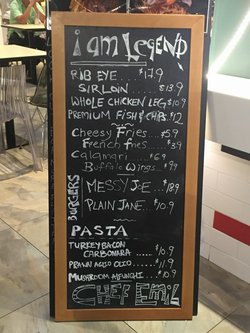 i am LEGEND
RIB EYE.....$17.9
SIRLOIN ..... $13.9
WHOLE CHICKEN LEG $10.9
PREMIUM FISH & CHIPS $12
CHEESY FRIES.....$5.9
FRENCH FRIES....$3.9
CALAMARI......$6.9
BUFFALO WINGS..$9.9
BURGERS
MESSY JOE...$18.9
PLAIN JANE...$10.9
PASTA
TURKEY BACON
CARBONARA.....$10.9
PRAWN AGLIO OLIO...$11.9
MUSHROOM ALFUNGHI...$10.9
CHEF EMIL